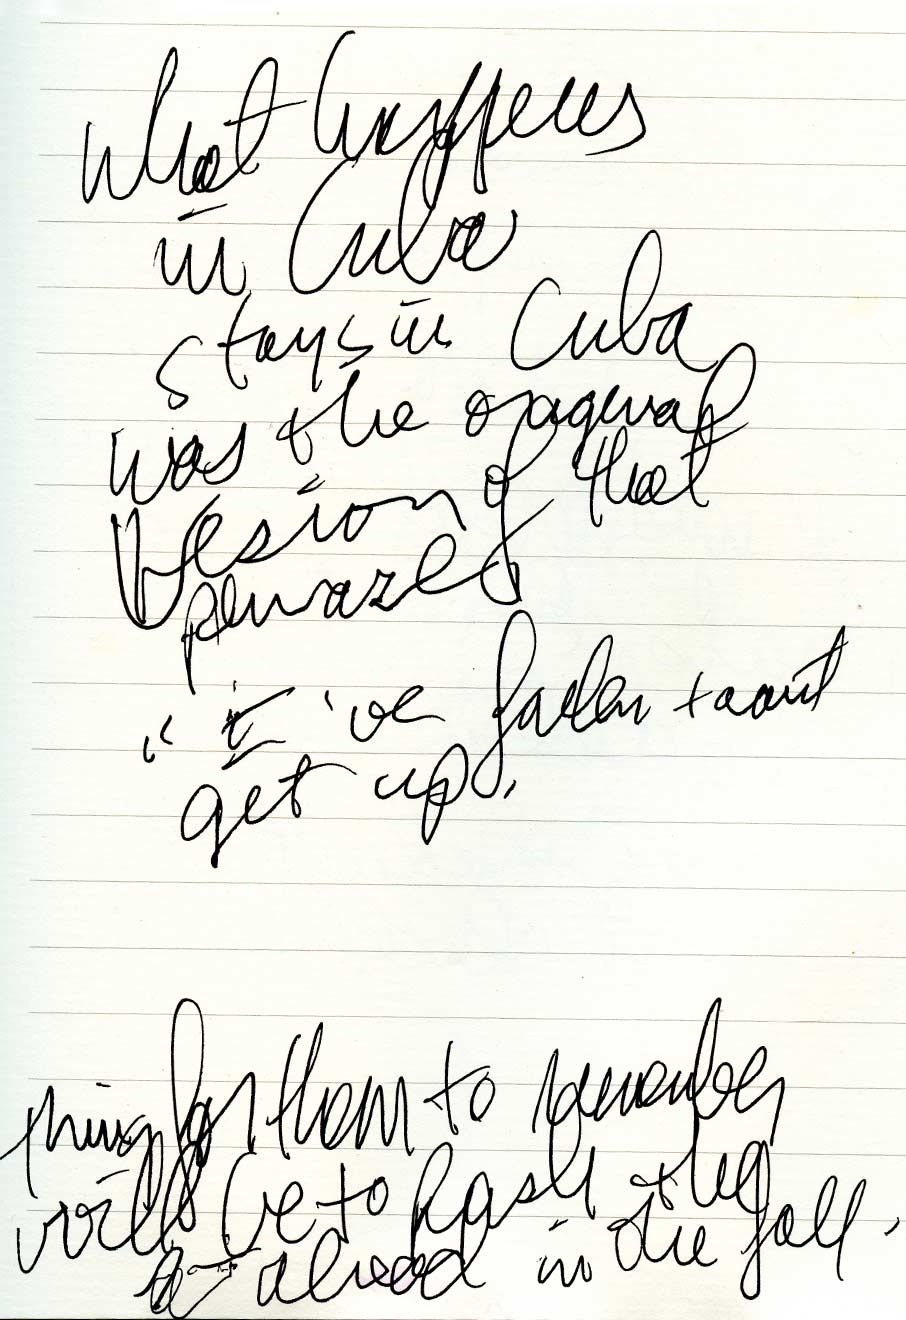 What happens
in Cuba
stays in Cuba
was the oragenal
Vesion of that
phraze
" I 've fallen + cant
get up.
thing for them to remember
will be to flash they
ahead in the fall.